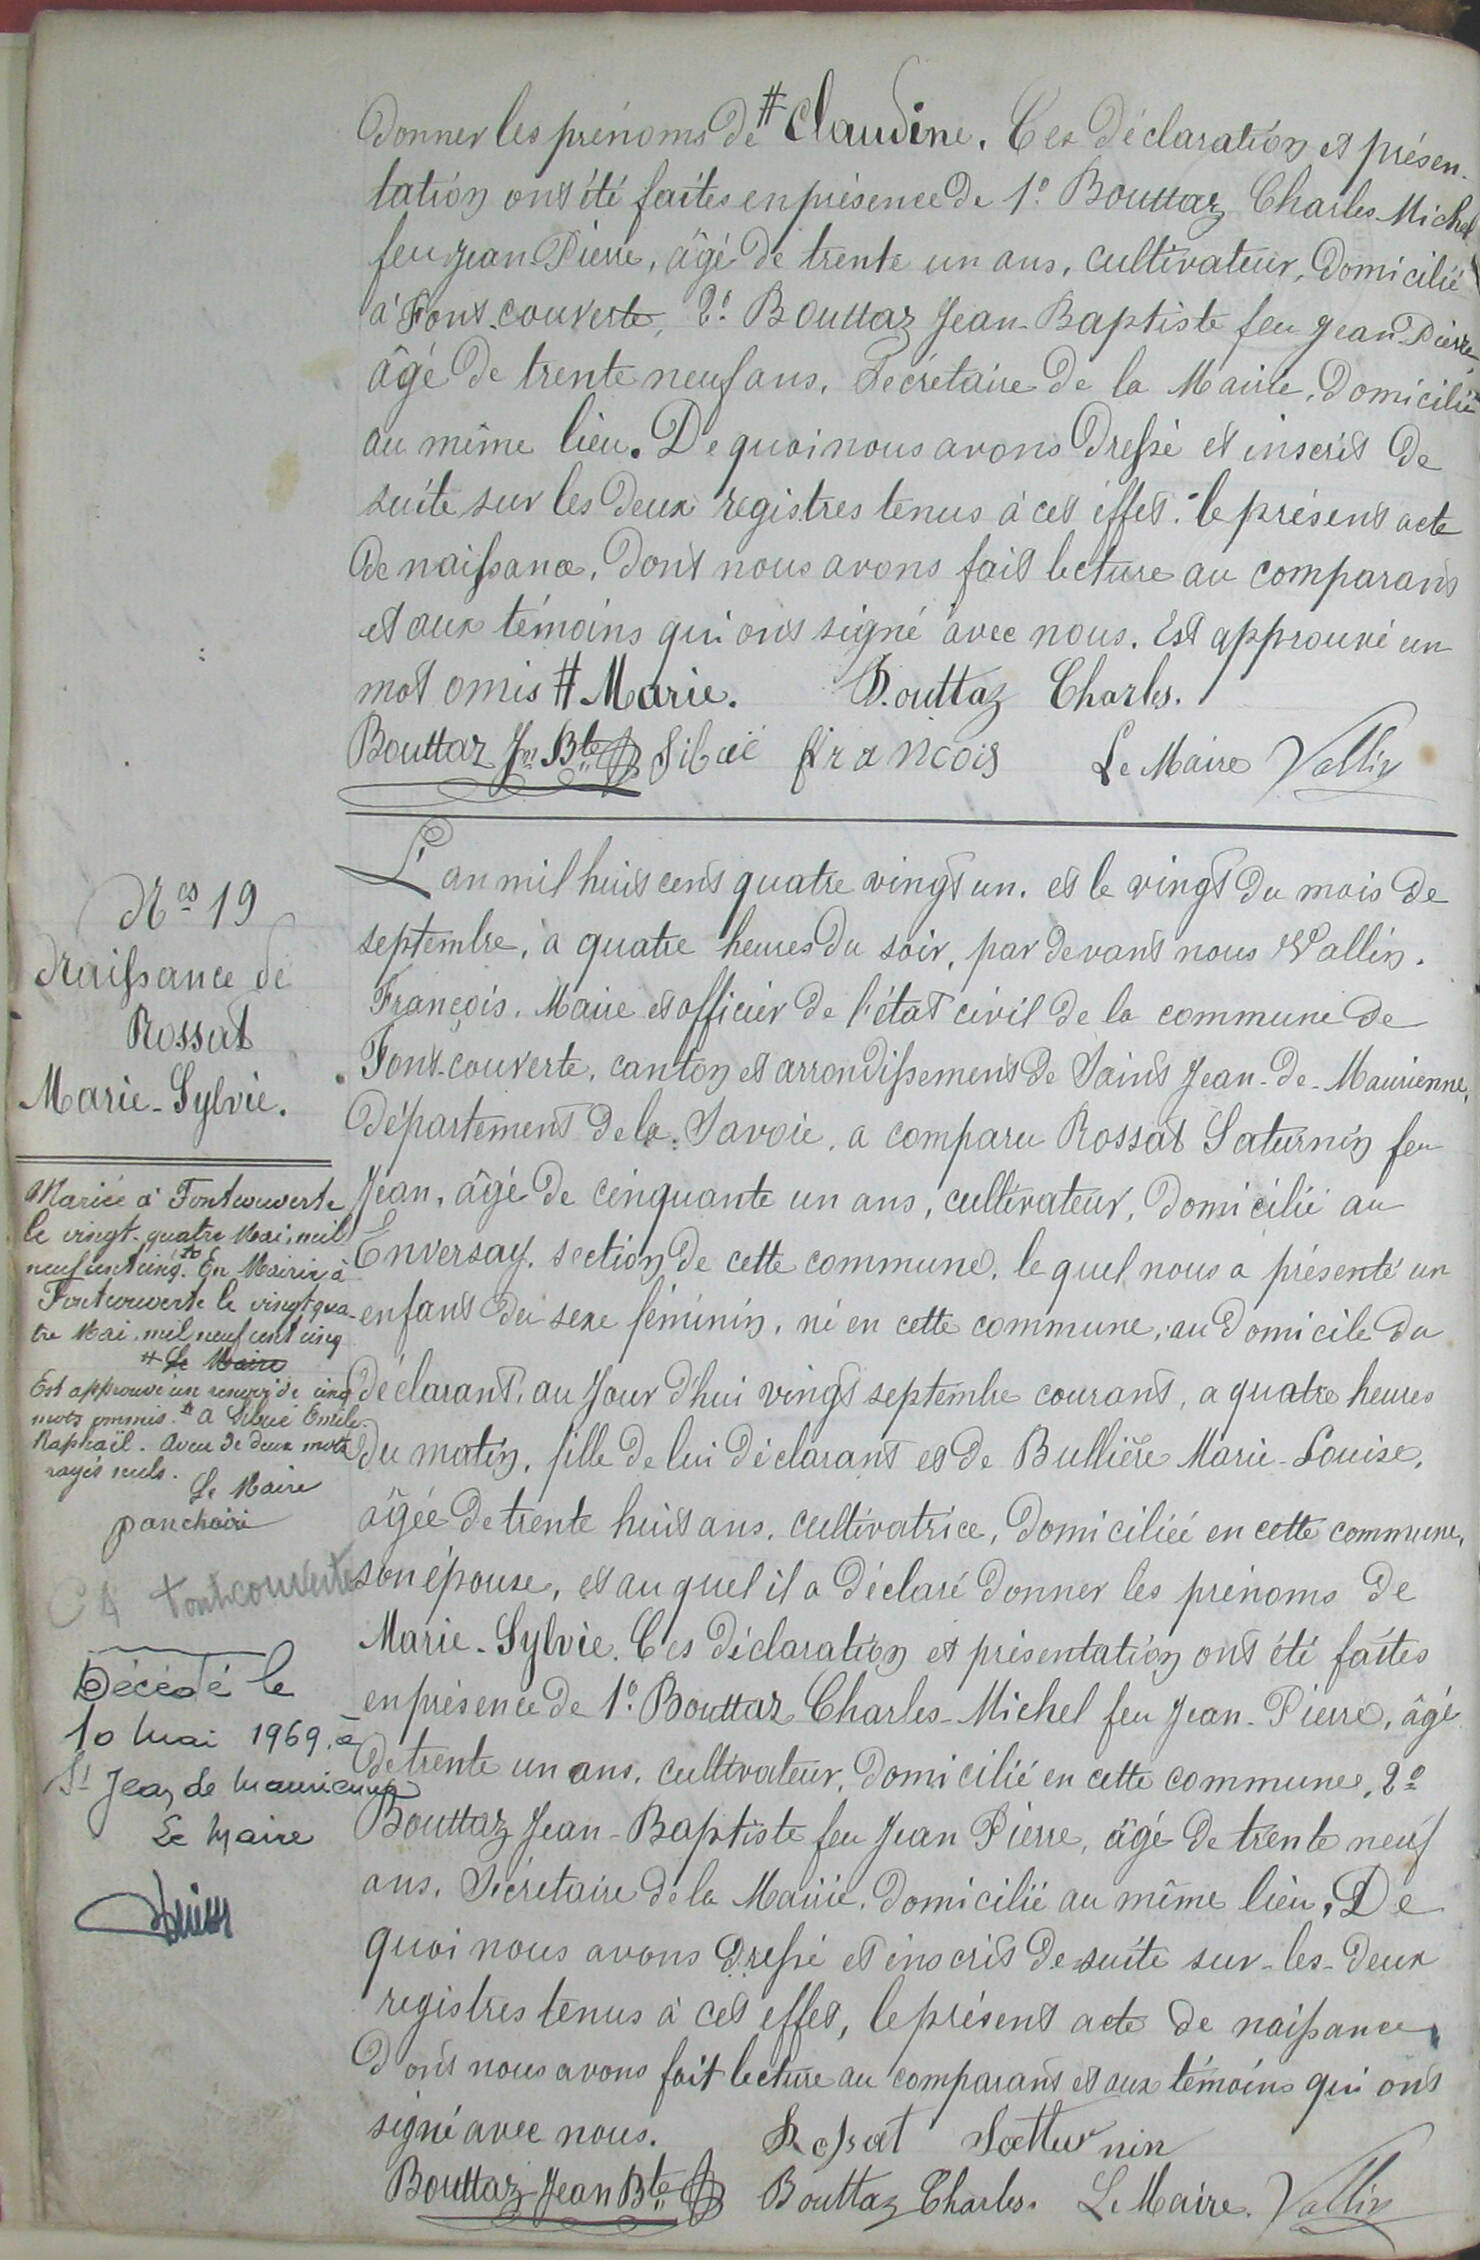 donner les prénoms de # Claudine. Ces déclaration et présen-
tation ont été faites en présence de 1° Bouttaz Charles Michel
feu Jean Pierre, âgé de trente un ans, cultivateur, domicilié
à Font-couverte, 2° Bouttaz Jean-Baptiste feu Jean Pierre
âgé de trente neuf ans, Sécrétaire de la Mairie, domicilié
au même lieu. De quoi nous avons dressé et inscrit de
suite sur les deux registres tenus à cet éffet. le présent acte
de naissance, dont nous avons fait lecture au comparant
et aux témoins qui ont signé avec nous. Est approuvé un
mot omis # Marie. Bouttaz Charles.
Bouttaz Jn Bte Sibué François Le Maire Vallin
Nos 19
Naissance de
Rossat
Marie-Sylvie.
Mariée à Fontcouverte
le vingt-quatre Mai, mil
neuf cent cinq. # En Mairie, à
Fontcouverte le vingt qua-
tre Mai, mil neuf cent cinq
# Le Maire
Est approuvé un renvoi de cinq
mots ommis. # a Sibué Emile
Raphaël. Aveu de deux mots
rayés nuls.
Le Maire
panchairi
C 4 Fontcouverte
Décédé le
10 Mai 1969, à
St Jean de Maurienne
Le Maire
L'an mil huit cent quatre vingt un. et le vingt du mois de
septembre, à quatre heures du soir, par devant nous Vallin.
François. Maire et officier de l'état civil de la commune de
Font-couverte, canton et arrondissement de Saint Jean-de-Maurienne,
Département de la Savoie, a comparu Rossat Saturnin feu
Jean, âgé de cinquante un ans, cultivateur, domicilié au
Enversay, section de cette commune. le quel nous a présenté un
enfant du sexe féminin, né en cette commune, au domicile du
déclarant, au Jour d'hui vingt septembre courant, a quatre heures
du matin, fille de lui déclarant et de Bullière Marie-Louise,
âgée de trente huit ans, cultivatrice, domiciliée en cette commune,
son épouse, et au quel il a déclaré donner les prénoms de
Marie-Sylvie. Ces déclaration et présentation ont été faites
en présence de 1° Bouttaz Charles-Michel feu Jean-Pierre, âgé
de trente un ans, cultivateur, domicilié en cette commune, 2°
Bouttaz Jean-Baptiste feu Jean Pierre, âgé de trente neuf
ans, Sécrétaire de la Mairie, domicilié au même lieu, De
quoi nous avons dressé et inscrit de suite sur-les-deux
registres tenus à cet effet, le présent acte de naissance,
dont nous avons fait lecture au comparant et aux témoins qui ont
signé avec nous. Rossat Satturnin
Bouttaz Jean Bte Bouttaz Charles. Le Maire. Vallin